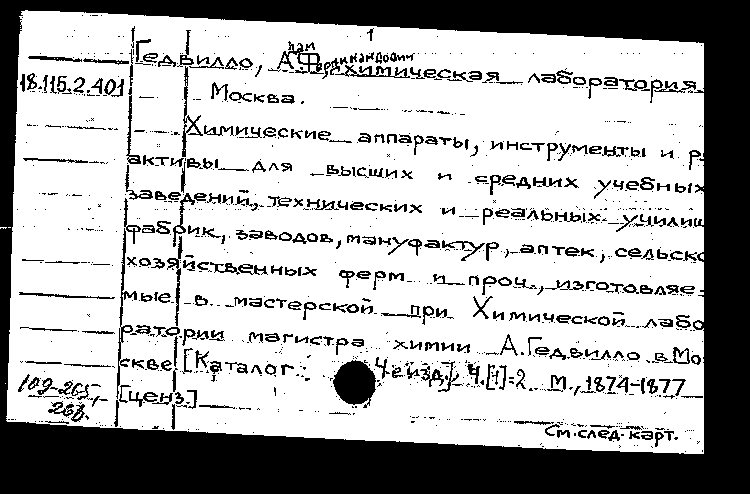 1
Гедвилло, А.Ф., химическая лаборатория.
18.115.2.401
Москва.
Химические аппараты, инструменты и р
активы для высших и средних учебных
заведений, технических и реальных училищ
фабрик, заводов, мануфактур, аптек, сельско
хозяйственных ферм и проч., изготовляе-
мые в мастерской при Химической лабо
ратории магистра химии А.Гедвилло в Мо
скве [Каталог. 4е изд.], Ч.[1]-2 М., 1874-1877
109-265,-
266.
[ценз]
См.след.карт.